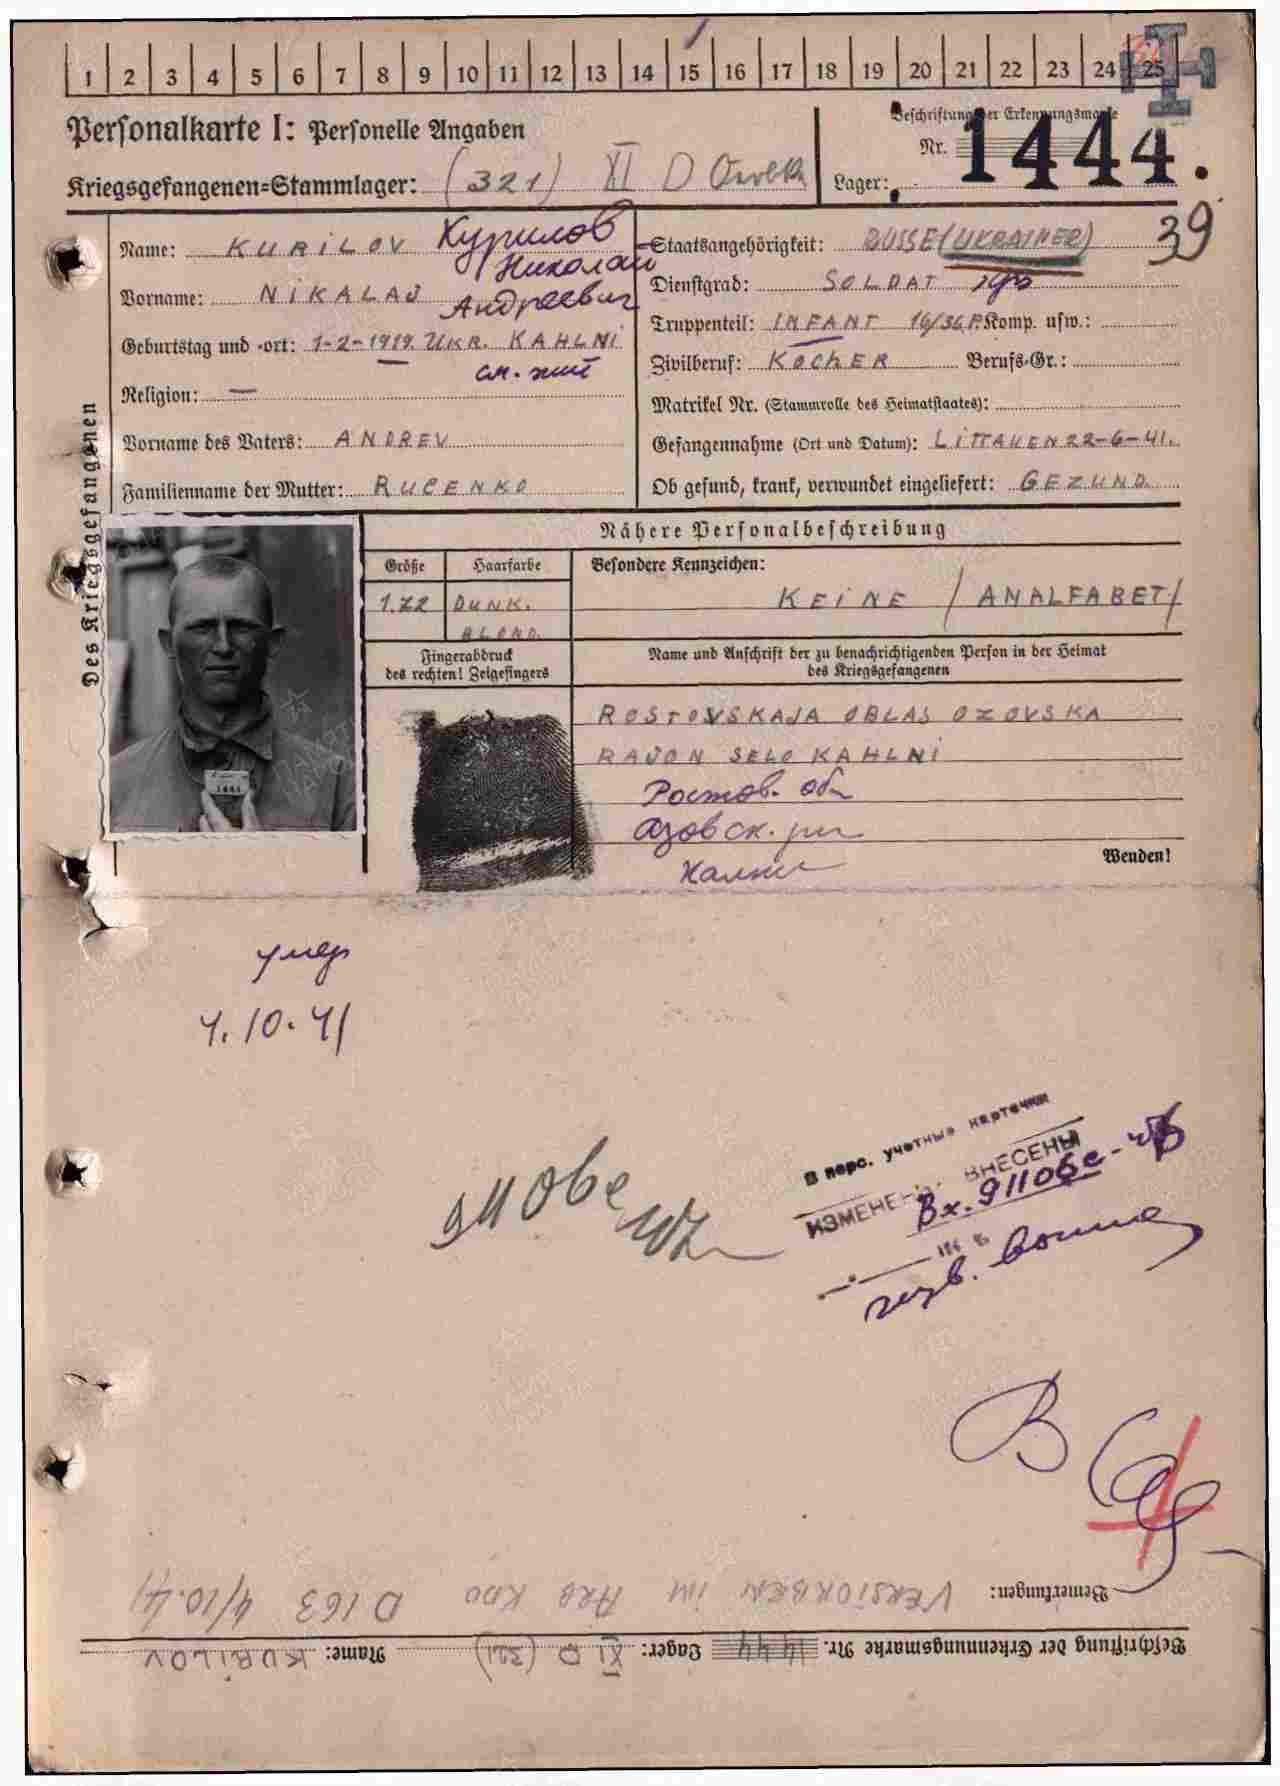 1 2 3 4 5 6 7 8 9 10 11 12 13 14 15 16 17 18 19 20 21 22 23 24 25
Personalkarte I: Personelle Angaben
Kriegsgefangenen=Stammlager: (321) XI D
Beschriftung der Erkennungsmarke
Nr. 1444.
Lager:
39
Des Kriegsgefangenen
Name: KURILOV Курилов
Николай
Vorname: NIKALAJ Андреевич
Geburtstag und -ort: 1-2-1919. UKR. KAHLNI
см. жит
Religion: —
Vorname des Vaters: ANDREV
Familienname der Mutter: RUCENKO
Staatsangehörigkeit: RUSSE (UKRAINER)
Dienstgrad: SOLDAT
Truppenteil: INFANT 16/36 P. Komp. usw.:
Zivilberuf: KOCHER Berufs-Gr.:
Matrikel Nr. (Stammrolle des Heimatstaates):
Gefangennahme (Ort und Datum): LITTAUEN 22-6-41.
Ob gesund, krank, verwundet eingeliefert: GEZUND.
1444
Nähere Personalbeschreibung
Größe Haarfarbe Besondere Kennzeichen:
1.72 DUNK. BLOND.
KEINE / ANALFABET /
Fingerabdruck
des rechten! Zeigefingers
Name und Anschrift der zu benachrichtigenden Person in der Heimat
des Kriegsgefangenen
ROSTOVSKAJA OBLAS OZOVSKA
RAJON SELO KAHLNI
Ростов. об
Азовск. р-н
Wenden!
умер
4.10.41
В перс. учетные карточки
ИЗМЕНЕНИЯ ВНЕСЕНЫ
Вх. 91106с
Bemerkungen: VERSTORBEN IM ARB KDO D 163 4/10.41
Beschriftung der Erkennungsmarke Nr. 1444 Lager: XI D (321) Name: KURILOV